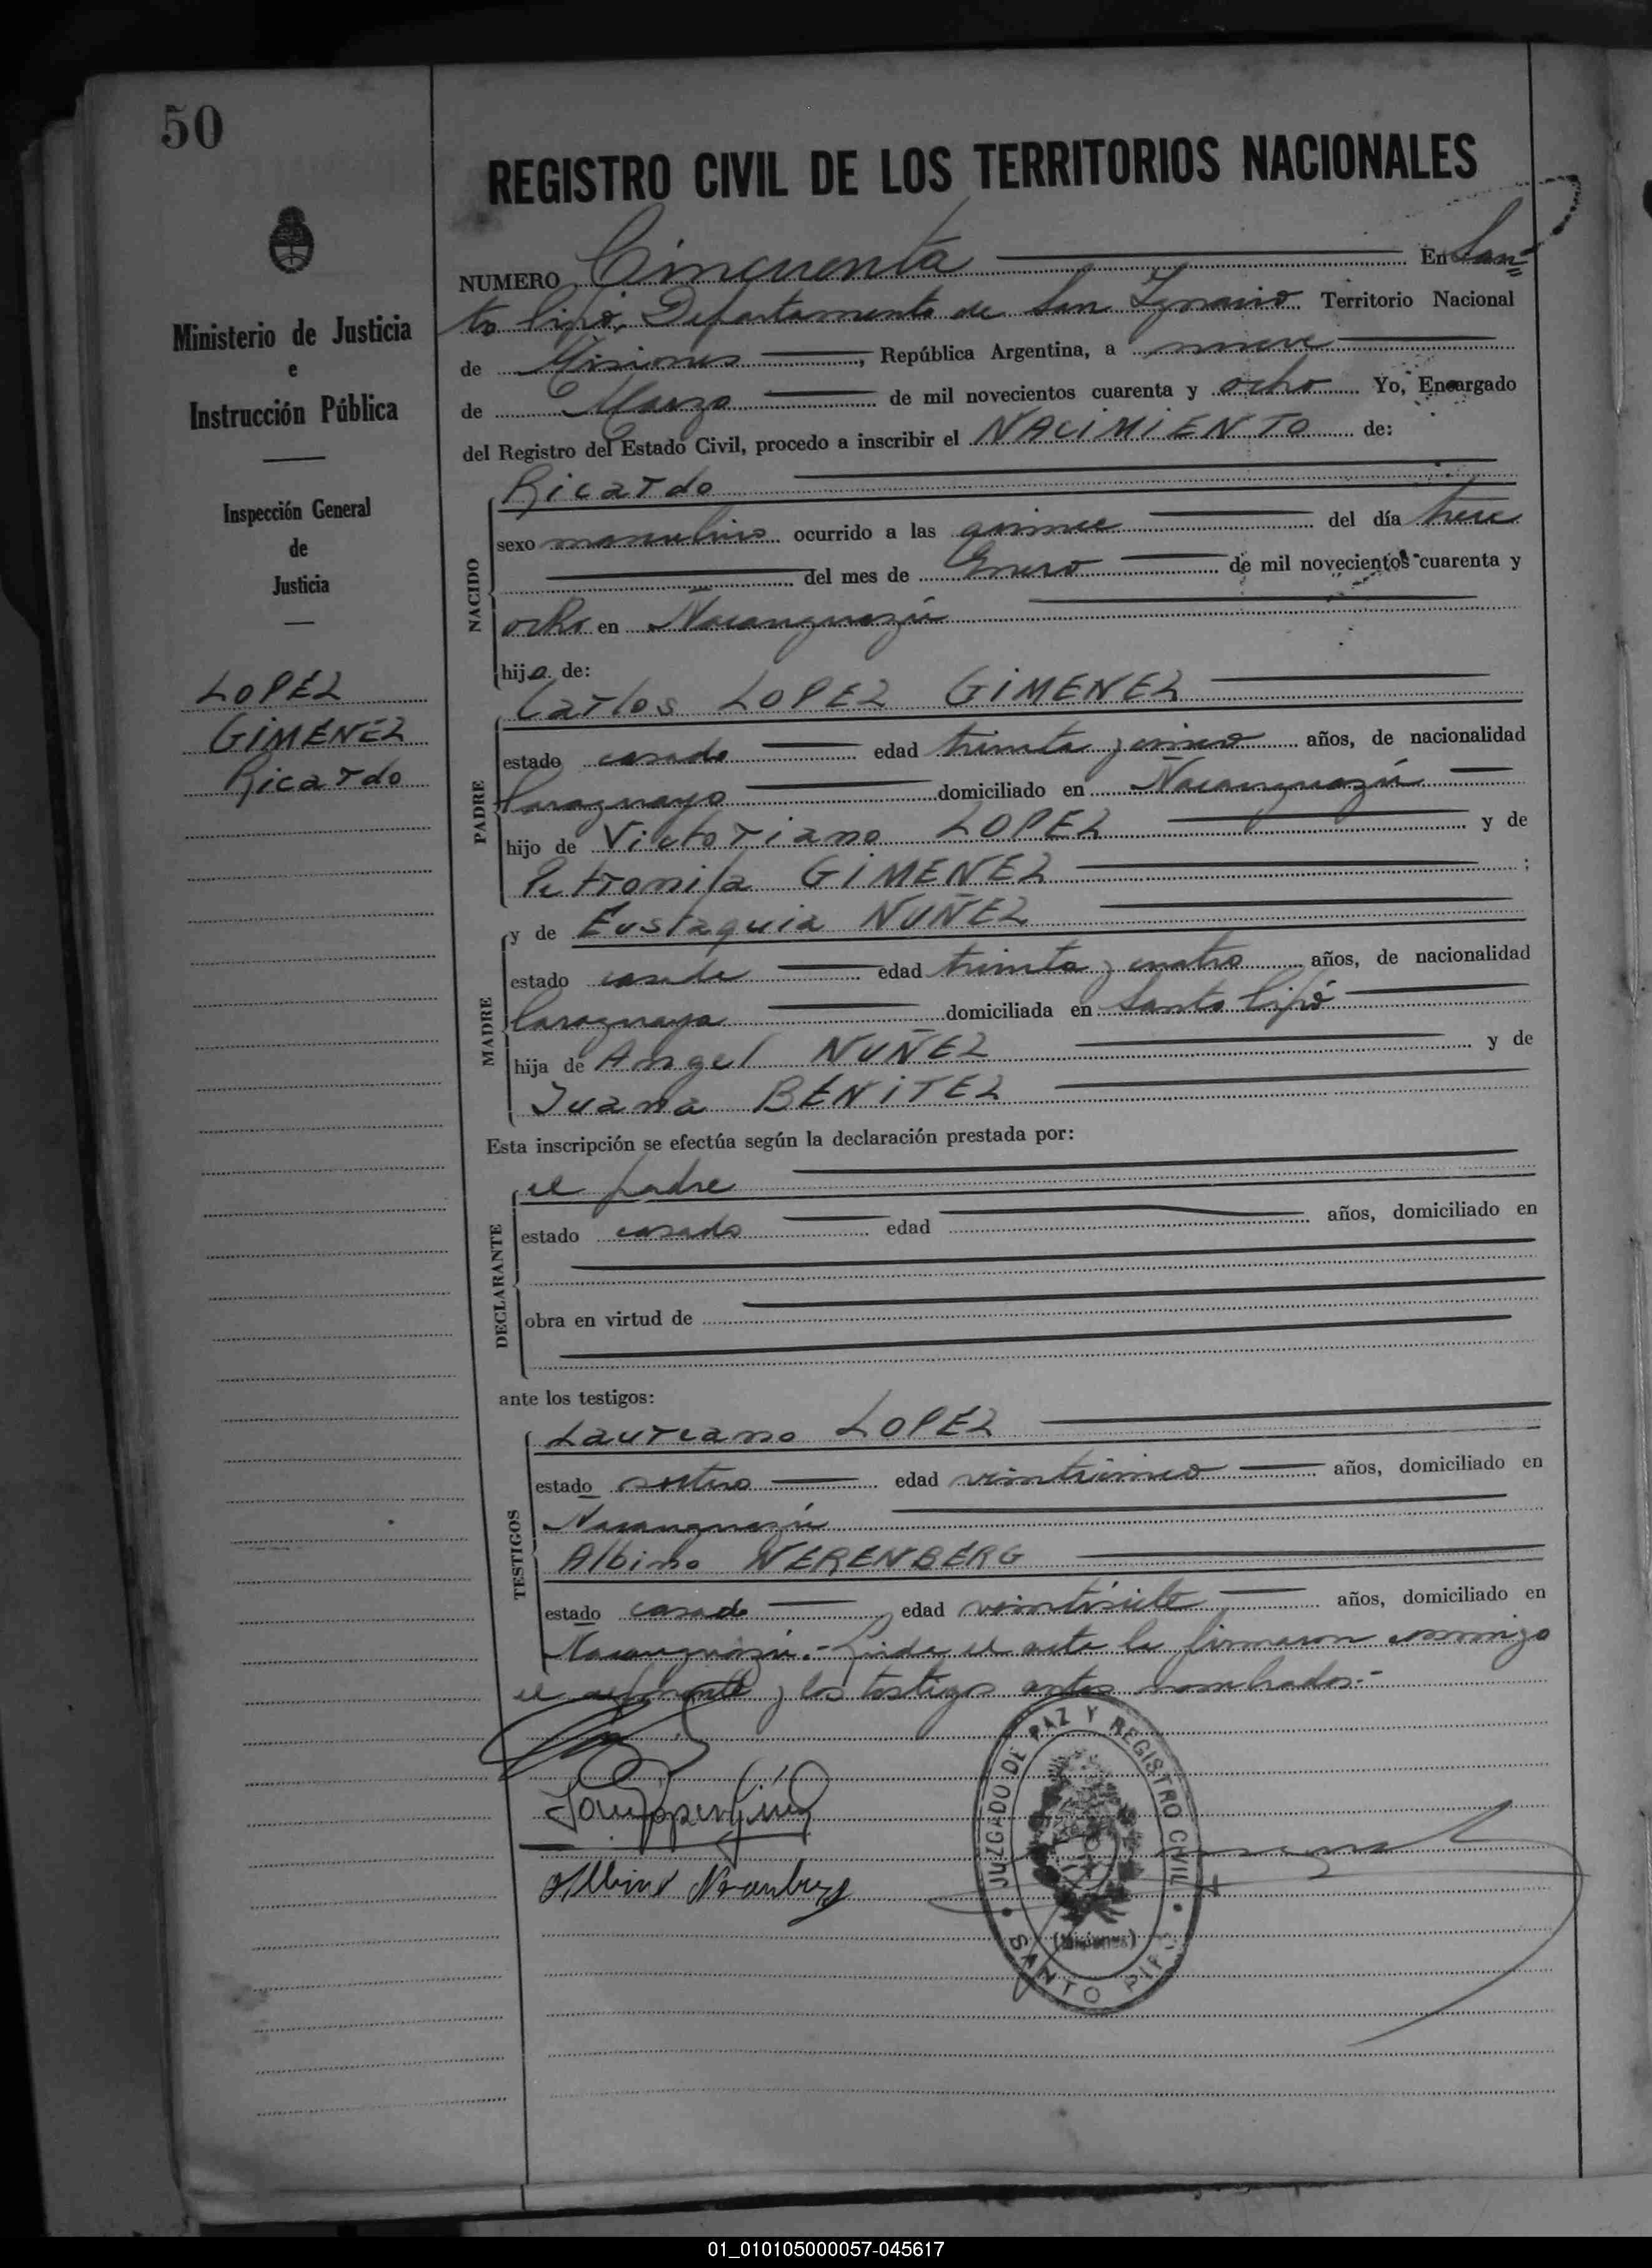 50
Ministerio de Justicia
e
Instrucción Pública
Inspección General
de
Justicia
LOPEZ
GIMENEZ
Ricardo
REGISTRO CIVIL DE LOS TERRITORIOS NACIONALES
NUMERO Cincuenta En San=
to Pipó, Departamento de San Ignacio Territorio Nacional
de Misiones, República Argentina, a nueve
de Marzo de mil novecientos cuarenta y ocho Yo, Encargado
del Registro del Estado Civil, procedo a inscribir el NACIMIENTO de:
NACIDO
Ricardo
sexo masculino ocurrido a las quince del día trece
del mes de Enero de mil novecientos cuarenta y
ocho en Ñacanguazú
hijo de:
PADRE
Carlos LOPEZ GIMENEZ
estado casado edad treinta y cinco años, de nacionalidad
Paraguayo domiciliado en Ñacanguazú
hijo de Victoriano LOPEZ y de
Petronila GIMENEZ ;
MADRE
y de Eustaquia NUÑEZ
estado casada edad treinta y cuatro años, de nacionalidad
Paraguaya domiciliada en Santo Pipó
hija de Angel NUÑEZ y de
Juana BENITEZ
Esta inscripción se efectúa según la declaración prestada por:
DECLARANTE
el padre
estado casado edad años, domiciliado en
obra en virtud de
ante los testigos:
TESTIGOS
Laureano LOPEZ
estado soltero edad veinticinco años, domiciliado en
Ñacanguazú
Albino NERENBERG
estado casado edad veintisiete años, domiciliado en
Ñacanguazú.- Leida el acta la firmaron conmigo
el exponente y los testigos antes nombrados.-
Albino Nerenberg
JUZGADO DE PAZ Y REGISTRO CIVIL
(Misiones)
SANTO PIPÓ
01_010105000057-045617